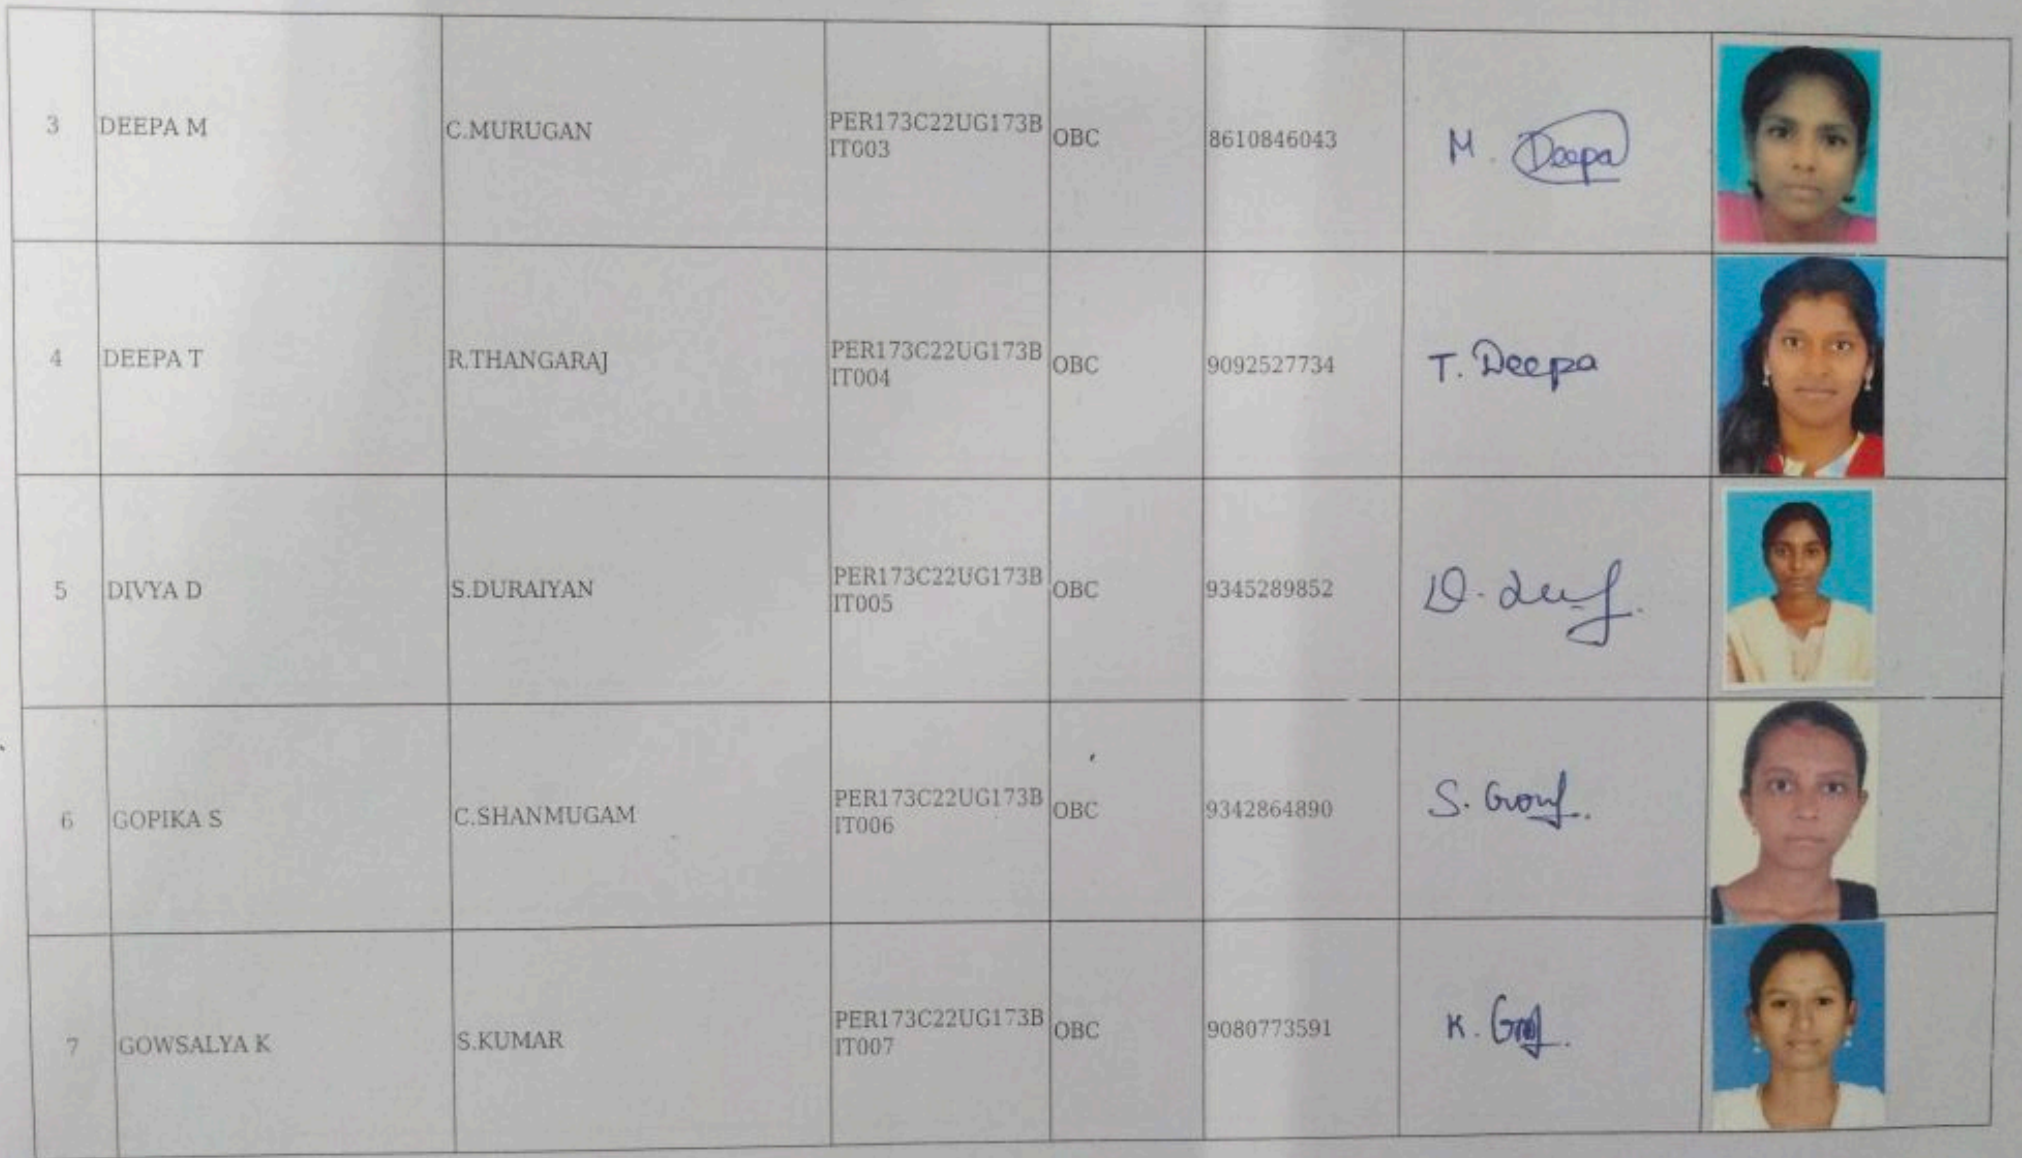 3 DEEPA M C.MURUGAN PER173C22UG173B OBC 8610846043 M. Deepa
IT003
4 DEEPA T R.THANGARAJ PER173C22UG173B OBC 9092527734 T. Deepa
IT004
5 DIVYA D S.DURAIYAN PER173C22UG173B OBC 9345289852 D.
IT005
6 GOPIKA S C.SHANMUGAM PER173C22UG173B OBC 9342864890 S.
IT006
7 GOWSALYA K S.KUMAR PER173C22UG173B OBC 9080773591 K.
IT007